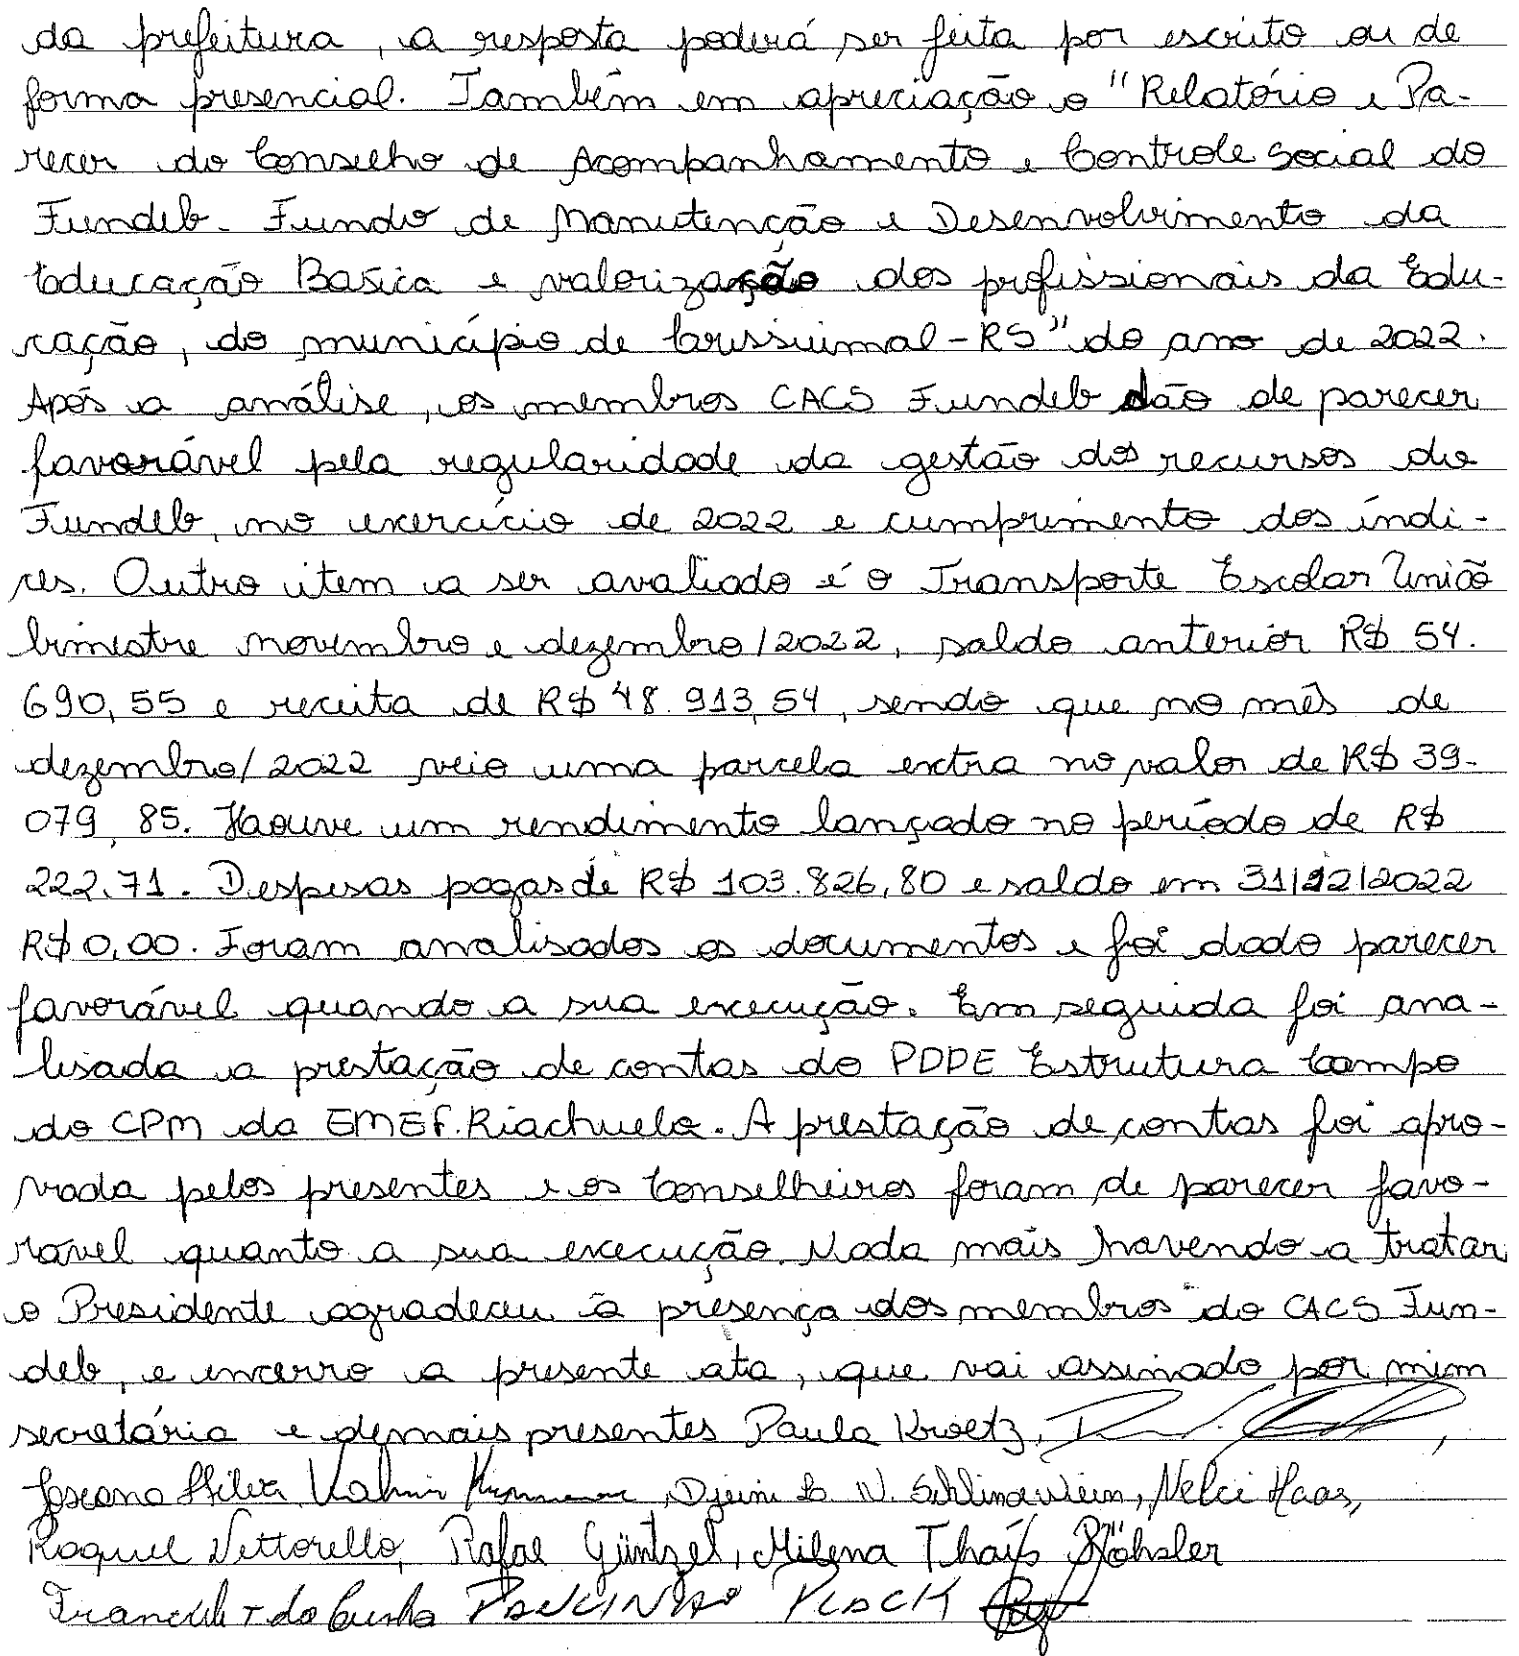 da prefeitura, a resposta poderá ser feita por escrito ou de
forma presencial. Também em apreciação o "Relatório e Pa-
recer do Conselho de Acompanhamento e Controle Social do
Fundeb - Fundo de Manutenção e Desenvolvimento da
Educação Basica e valorização dos profissionais da Edu-
cação, do município de Crissiumal-RS" do ano de 2022.
Após a análise, os membros CACS Fundeb dão de parecer
favorável pela regularidade da gestão dos recursos do
Fundeb, no exercício de 2022 e cumprimento dos índi-
ces. Outro item a ser avaliado é o Transporte Escolar União
bimestre novembro e dezembro/2022, saldo anterior R$ 54.
690,55 e receita de R$ 48.913,54, sendo que no mês de
dezembro/2022 veio uma parcela extra no valor de R$ 39.
079,85. Haouve um rendimento lançado no período de R$
222,71. Despesas pagas de R$ 103.826,80 e saldo em 31/12/2022
R$ 0,00. Foram analisados os documentos e foi dado parecer
favorável quando a sua execução. Em seguida foi ana-
lisada a prestação de contas do PDDE Estrutura Campo
do CPM da EMEF. Riachuelo. A prestação de contas foi apro-
vada pelos presentes e os Conselheiros foram de parecer favo-
rável quanto a sua execução. Nada mais havendo a tratar
o Presidente agradeceu à presença dos membros do CACS Fun-
deb, e encerro a presente ata, que vai assinado por mim
secretária e demais presentes Paula Kroetz,
Valmir, Djeini, Nelci Haas,
Raquel Vettorello, Rafael Güntzel, Milena Thaís
da Cunha